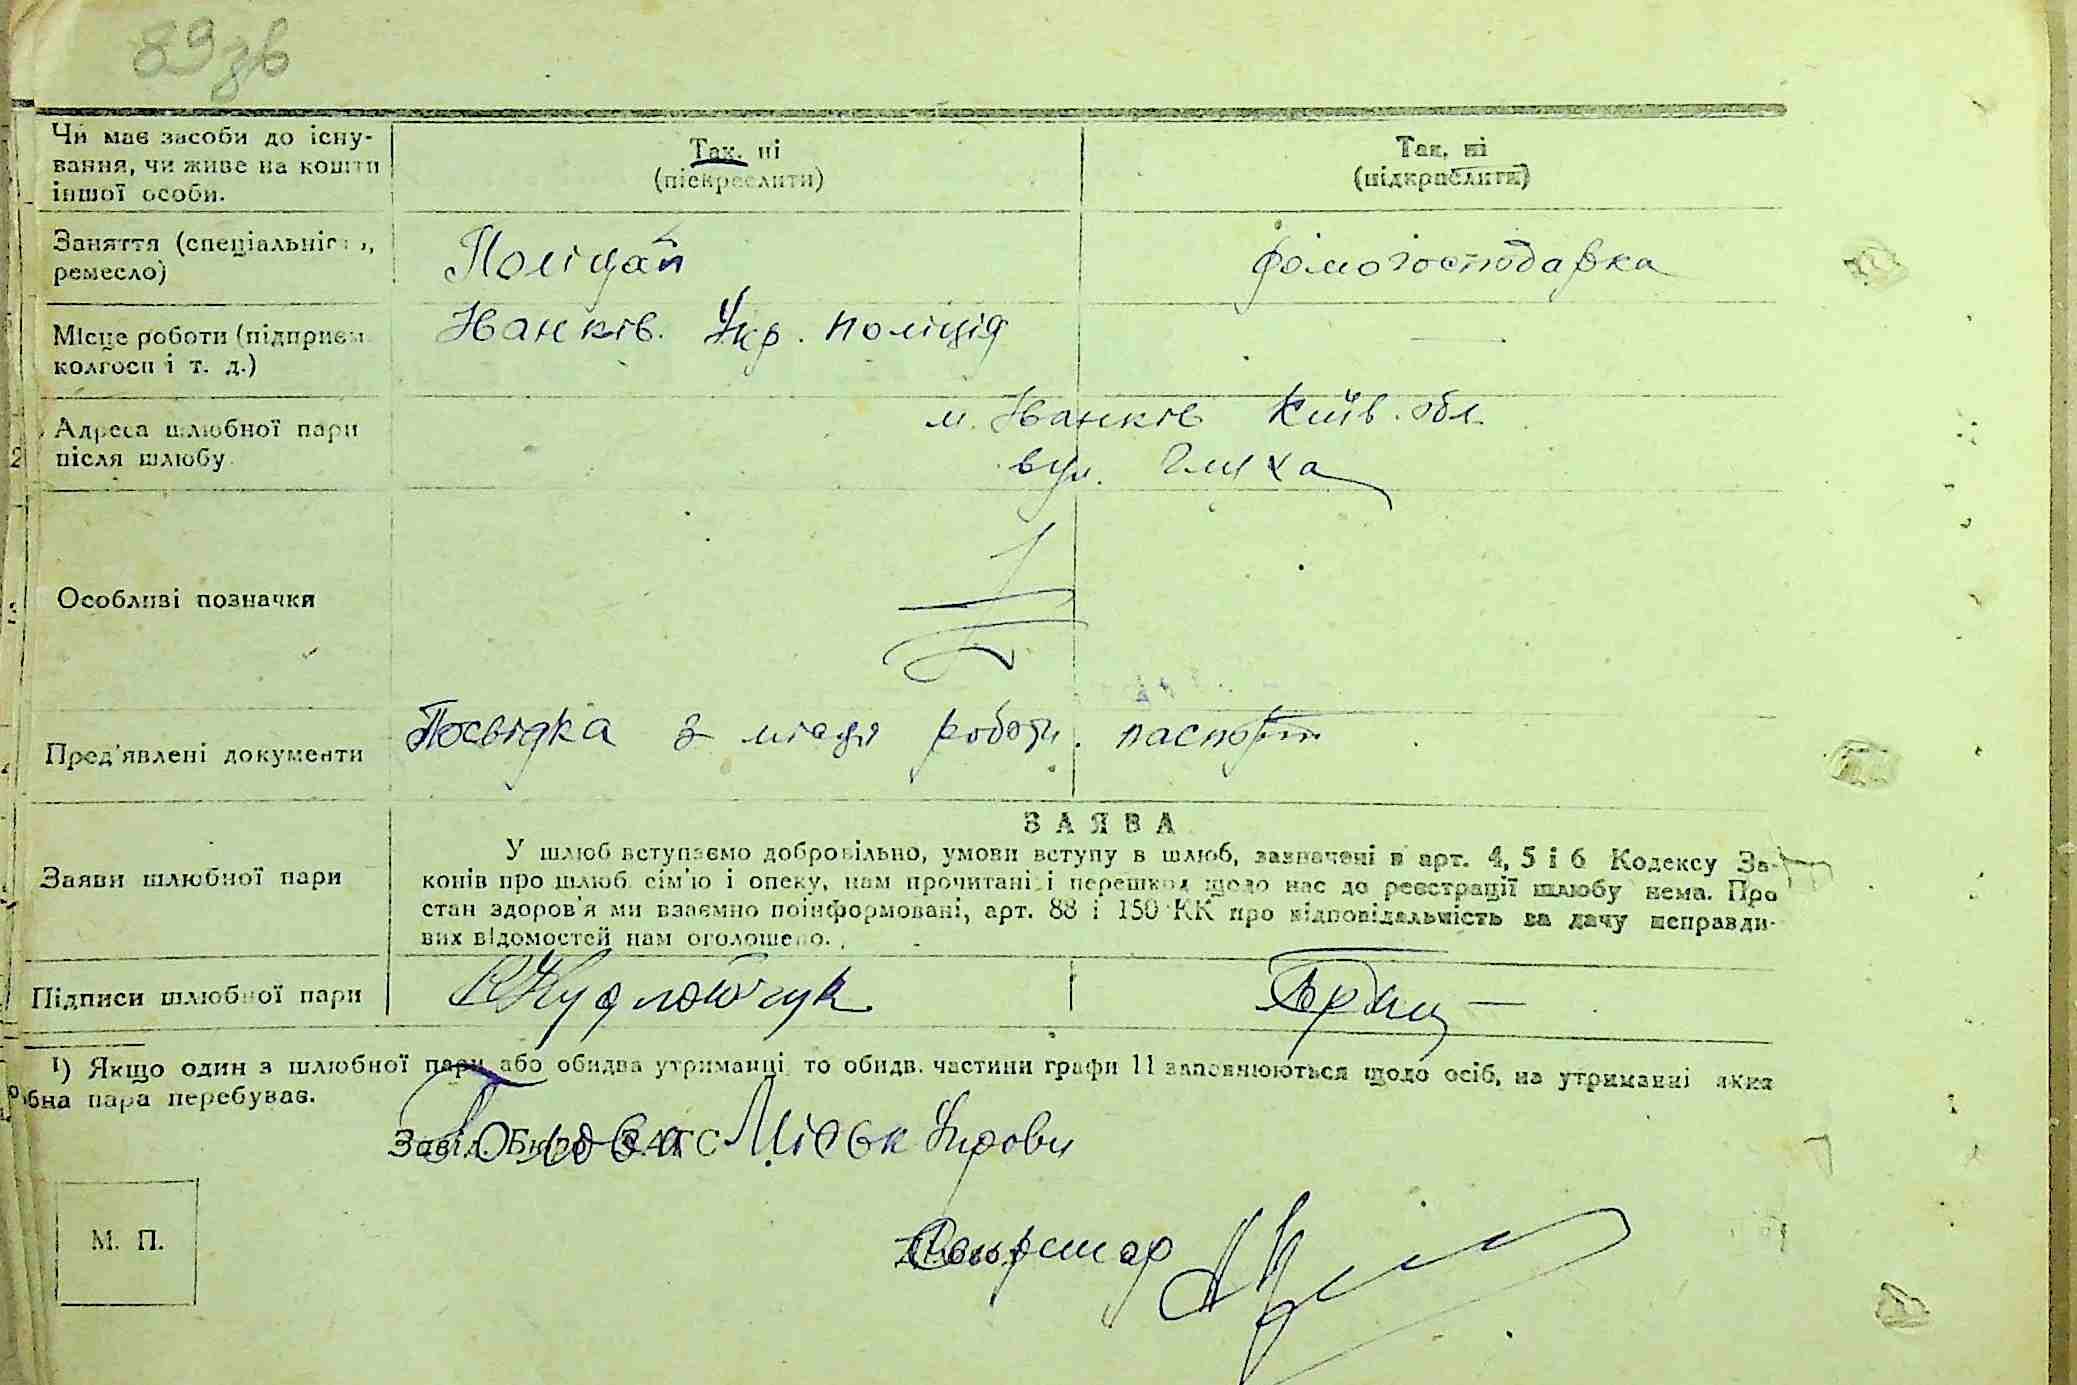 89 зв
Чи має засоби до існу-
вання, чи живе на кошти
іншої особи.
Так, ні
(підкреслити)
Так, ні
(підкреслити)
Заняття (спеціальність,
ремесло)
Поліцай
домогосподарка
Місце роботи (підприєм.
колгосп і т. д.)
Іванків. Укр. поліція
—
Адреса шлюбної пари
після шлюбу
м. Іванків Київ. обл.
вул. Глуха
Особливі позначки
Пред'явлені документи
Посвідка з місця роботи. паспорт
ЗАЯВА
Заяви шлюбної пари
У шлюб вступаємо добровільно, умови вступу в шлюб, зазначені в арт. 4, 5 і 6 Кодексу За-
конів про шлюб. сім'ю і опеку, нам прочитані і перешкод щодо нас до реєстрації шлюбу нема. Про
стан здоров'я ми взаємно поінформовані, арт. 88 і 150 КК про відповідальність за дачу неправди-
вих відомостей нам оголошено.
Підписи шлюбної пари
1) Якщо один з шлюбної пари або обидва утриманці, то обидв. частини графи 11 заповнюються щодо осіб, на утриманні яких
бна пара перебуває.
Завід. Бюро ЗАГС
Голова Міськ Управи
М. П.
Секретар